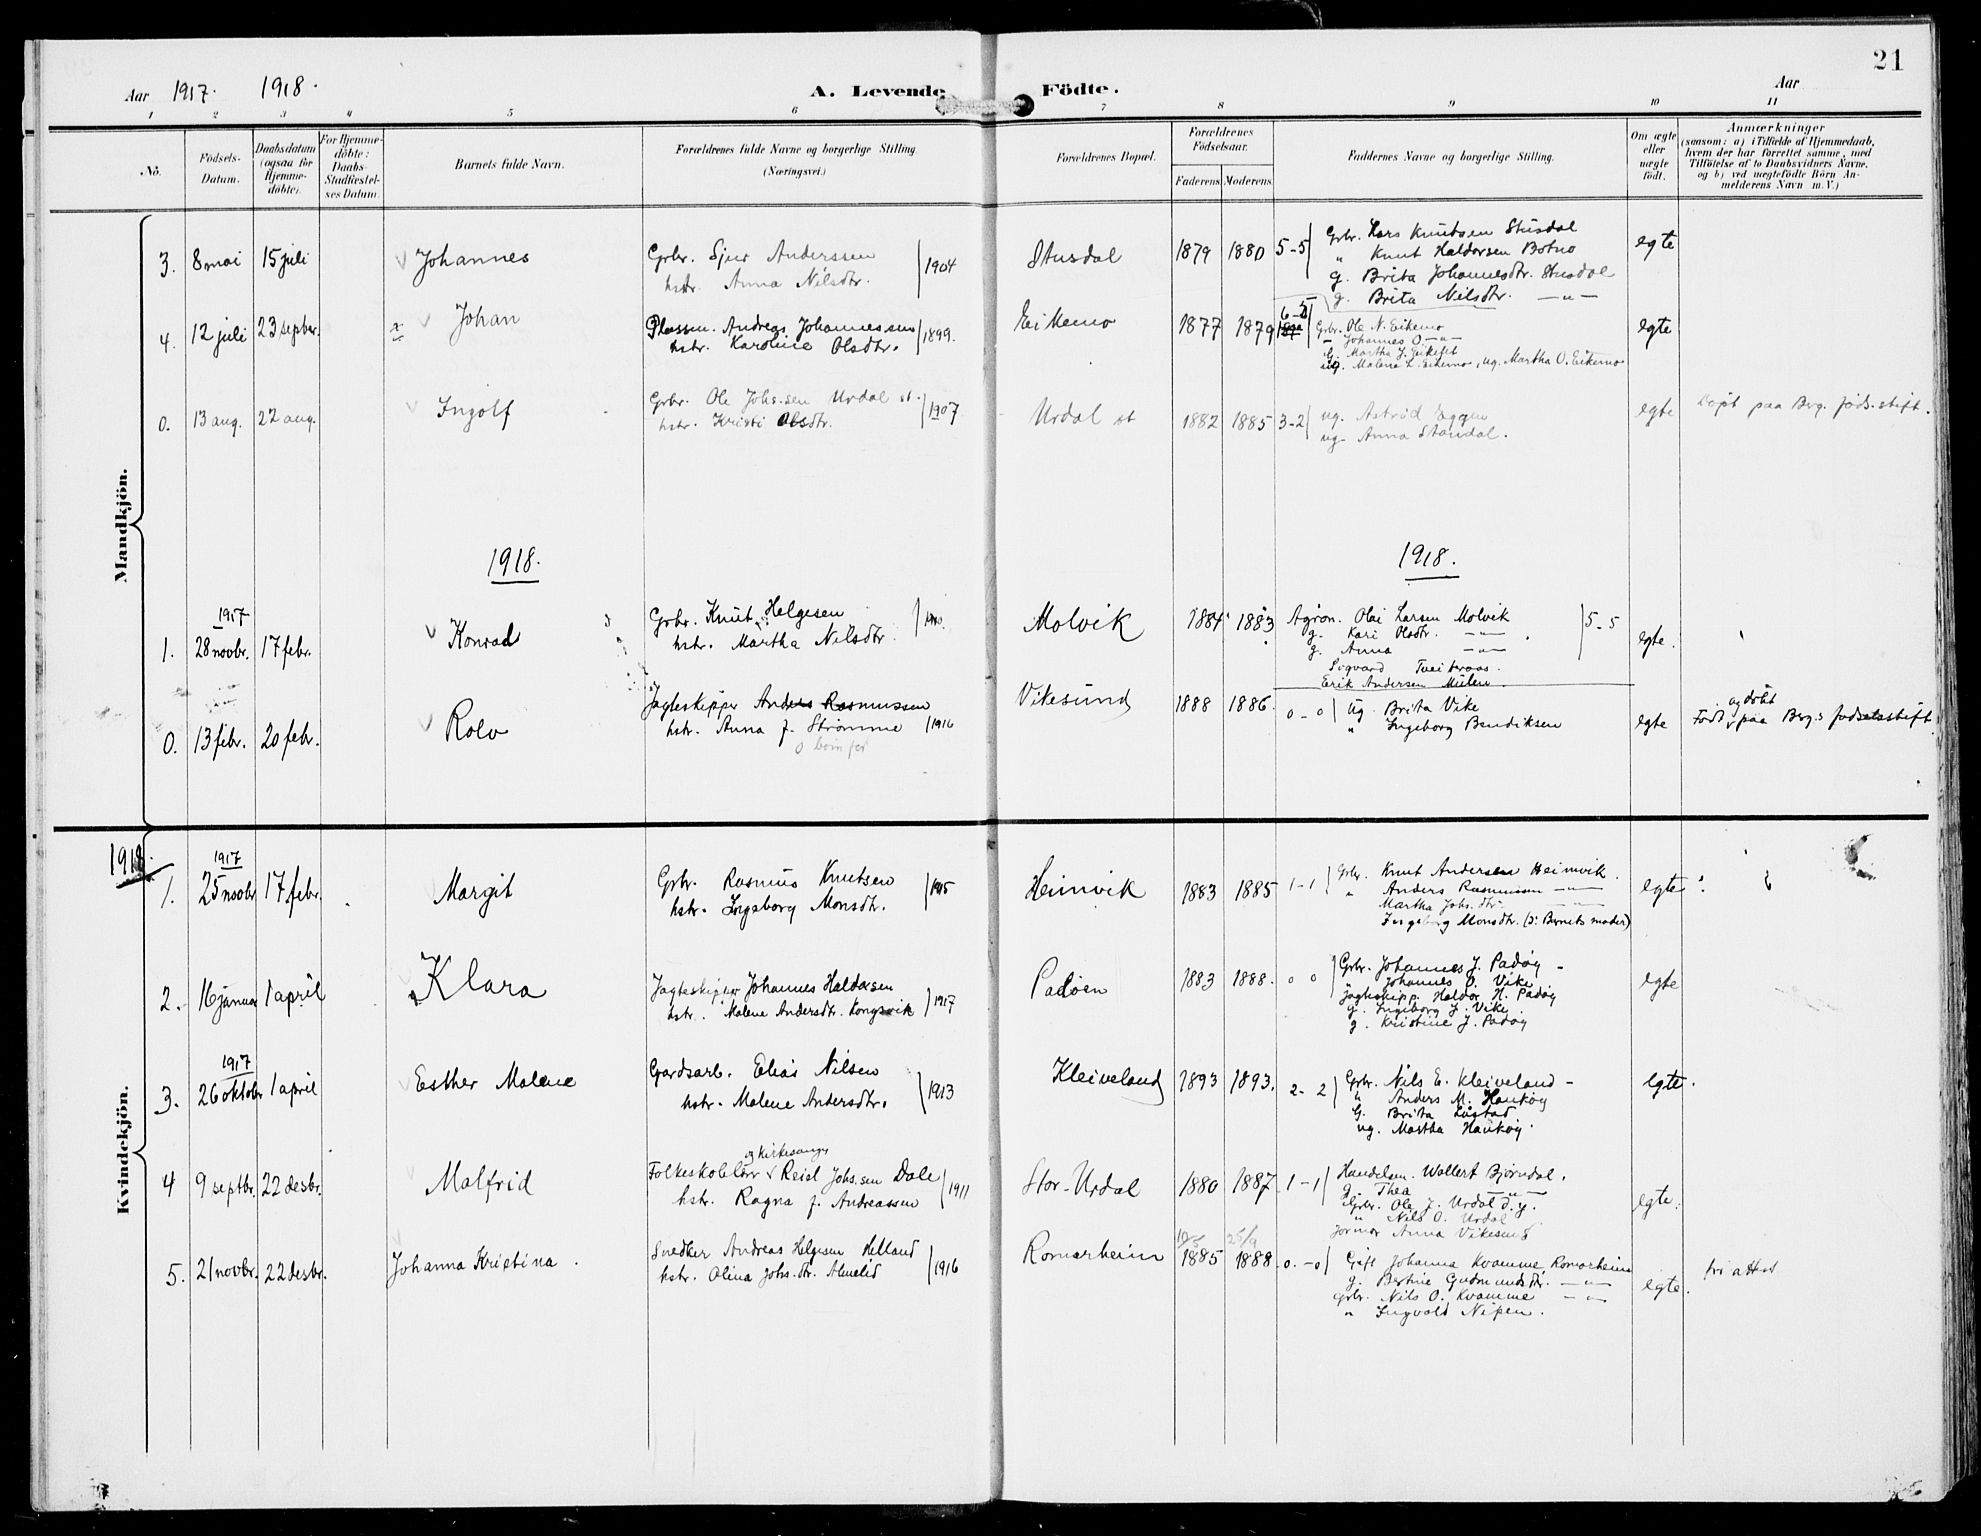 21
Aar 1917. 1918.
A. Levende Födte.
Aar
1 2 3 4 5 6 7 8 9 10 11
No.
Födsels-Datum.
Daabsdatum (ogsaa for Hjemme-döbte).
For Hjemme-döbte: Daabs-Stadfæstel-ses Datum.
Barnets fulde Navn.
Forældrenes fulde Navne og borgerlige Stilling. (Næringsvei.)
Forældrenes Bopæl.
Forældrenes Födselsaar.
Faderens Moderens
Faddernes Navne og borgerlige Stilling.
Om ægte eller uægte födt.
Anmærkninger
(saasom: a) i Tilfælde af Hjemmedaab,
hvem der har forrettet samme, med
Tilföielse af to Daabsvidners Navne,
og b) ved uægtefödte Börn An-
melderens Navn m. V.)
Mandkjön.
3. 8 mai 15 juli Johannes Grbr. Sjur Anderssen 1904 Stusdal 1879 1880 5-5 Grbr. Lars Knutsen Stusdal egte
hstr. Anna Nilsdtr. " Knut Haldorsen Botno
g. Brita Johannesdtr. Stusdal
g. Brita Nilsdtr. —"—
4. 12 juli 23 septbr. x Johan Plassm. Andreas Johannessen 1899. Eikemo 1877 1879 Grbr. Ole N. Eikemo egte
hstr. Karoline Olsdtr. - Johannes O —"—
G. Martha J. Eikefet
ug. Malene L. Eikemo, ug. Martha O. Eikemo
0. 13 aug. 22 aug. Ingolf Grbr. Ole Johs.sen Urdal st. 1907 Urdal st 1882 1885 3-2 ug. Astrid Eggen egte Døpt paa Berg. føds.stift.
hstr. Kristi Olsdtr. ug. Anna Standal.
1918. 1918.
1917
1. 28 novbr. 17 febr. Konrad Grbr. Knut Helgesen Molvik 1884 1883 Agron. Olai Larsen Molvik 5-5 egte.
hstr. Martha Nilsdtr. g. Kari Olsdtr. —"—
g. Anna —"—
Sigvard Tveiteraas.
Erik Andersen Mulen.
0. 13 febr. 20 febr. Rolv Jagteskipper Anders Rasmussen 1916 Vikesund 1888 1886 0-0 Ug. Brita Vike egte Født og døbt paa Berg.s fødselsstift.
hstr. Anna f. Strømme " Ingeborg Bendiksen
0 barn før
Kvindekjön.
1918.
1917
1. 25 novbr 17 febr. Margit Grbr. Rasmus Knutsen 1915 Heimvik 1883 1885 1-1 Grbr. Knut Andersen Heimvik. egte
hstr. Ingeborg Monsdtr. " Anders Rasmussen —"—
Martha Johs.dtr. —"—
Ingeborg Monsdtr. (ɔ: Barnets moder)
2. 16 januar 1 april Klara Jagteskipper Johannes Haldorsen 1917 Padøen 1883 1888. 0 0 Grbr. Johannes J. Padøy egte
hstr. Malene Andersdtr. Kongsvik " Johannes O. Vike
Jagteskipp. Haldor H. Padøy
g. Ingeborg J. Vike
g. Kristine J. Padøy
1917
3. 26 oktober 1 april Esther Malene Gardsarb. Elias Nilsen 1913 Kleiveland 1893 1893. 2-2 Grbr. Nils E. Kleiveland egte.
hstr. Malene Andersdtr. " Anders M. Haukøy
G. Brita
ug. Martha Haukøy.
4 9 septbr. 22 desbr. Malfrid og kirkesanger
Folkeskolelær. Reid. Johs.sen Dale 1911 Stor-Urdal 1880 1887 1-1 Handelsm. Wollert Bjørndal. egte.
hstr. Ragna f. Andreassen g. Thea —"—
Grbr. Ole J. Urdal d.y.
" Nils O. Urdal
Jormor Anna Vikesund
5. 21 novbr. 22 desbr. Johanna Kristina. Snedker Andreas Helgesen Helland 1916 Romarheim 1885 25/9 1888 0-0 Gift Johanna Kvamme, Romarheim egte. fri attest
hstr. Olina Johs.dtr. Almelid g. Bertine Gudmundsdtr. —"—
Grbr. Nils O. Kvamme —"—
" Ingvald Nipen.